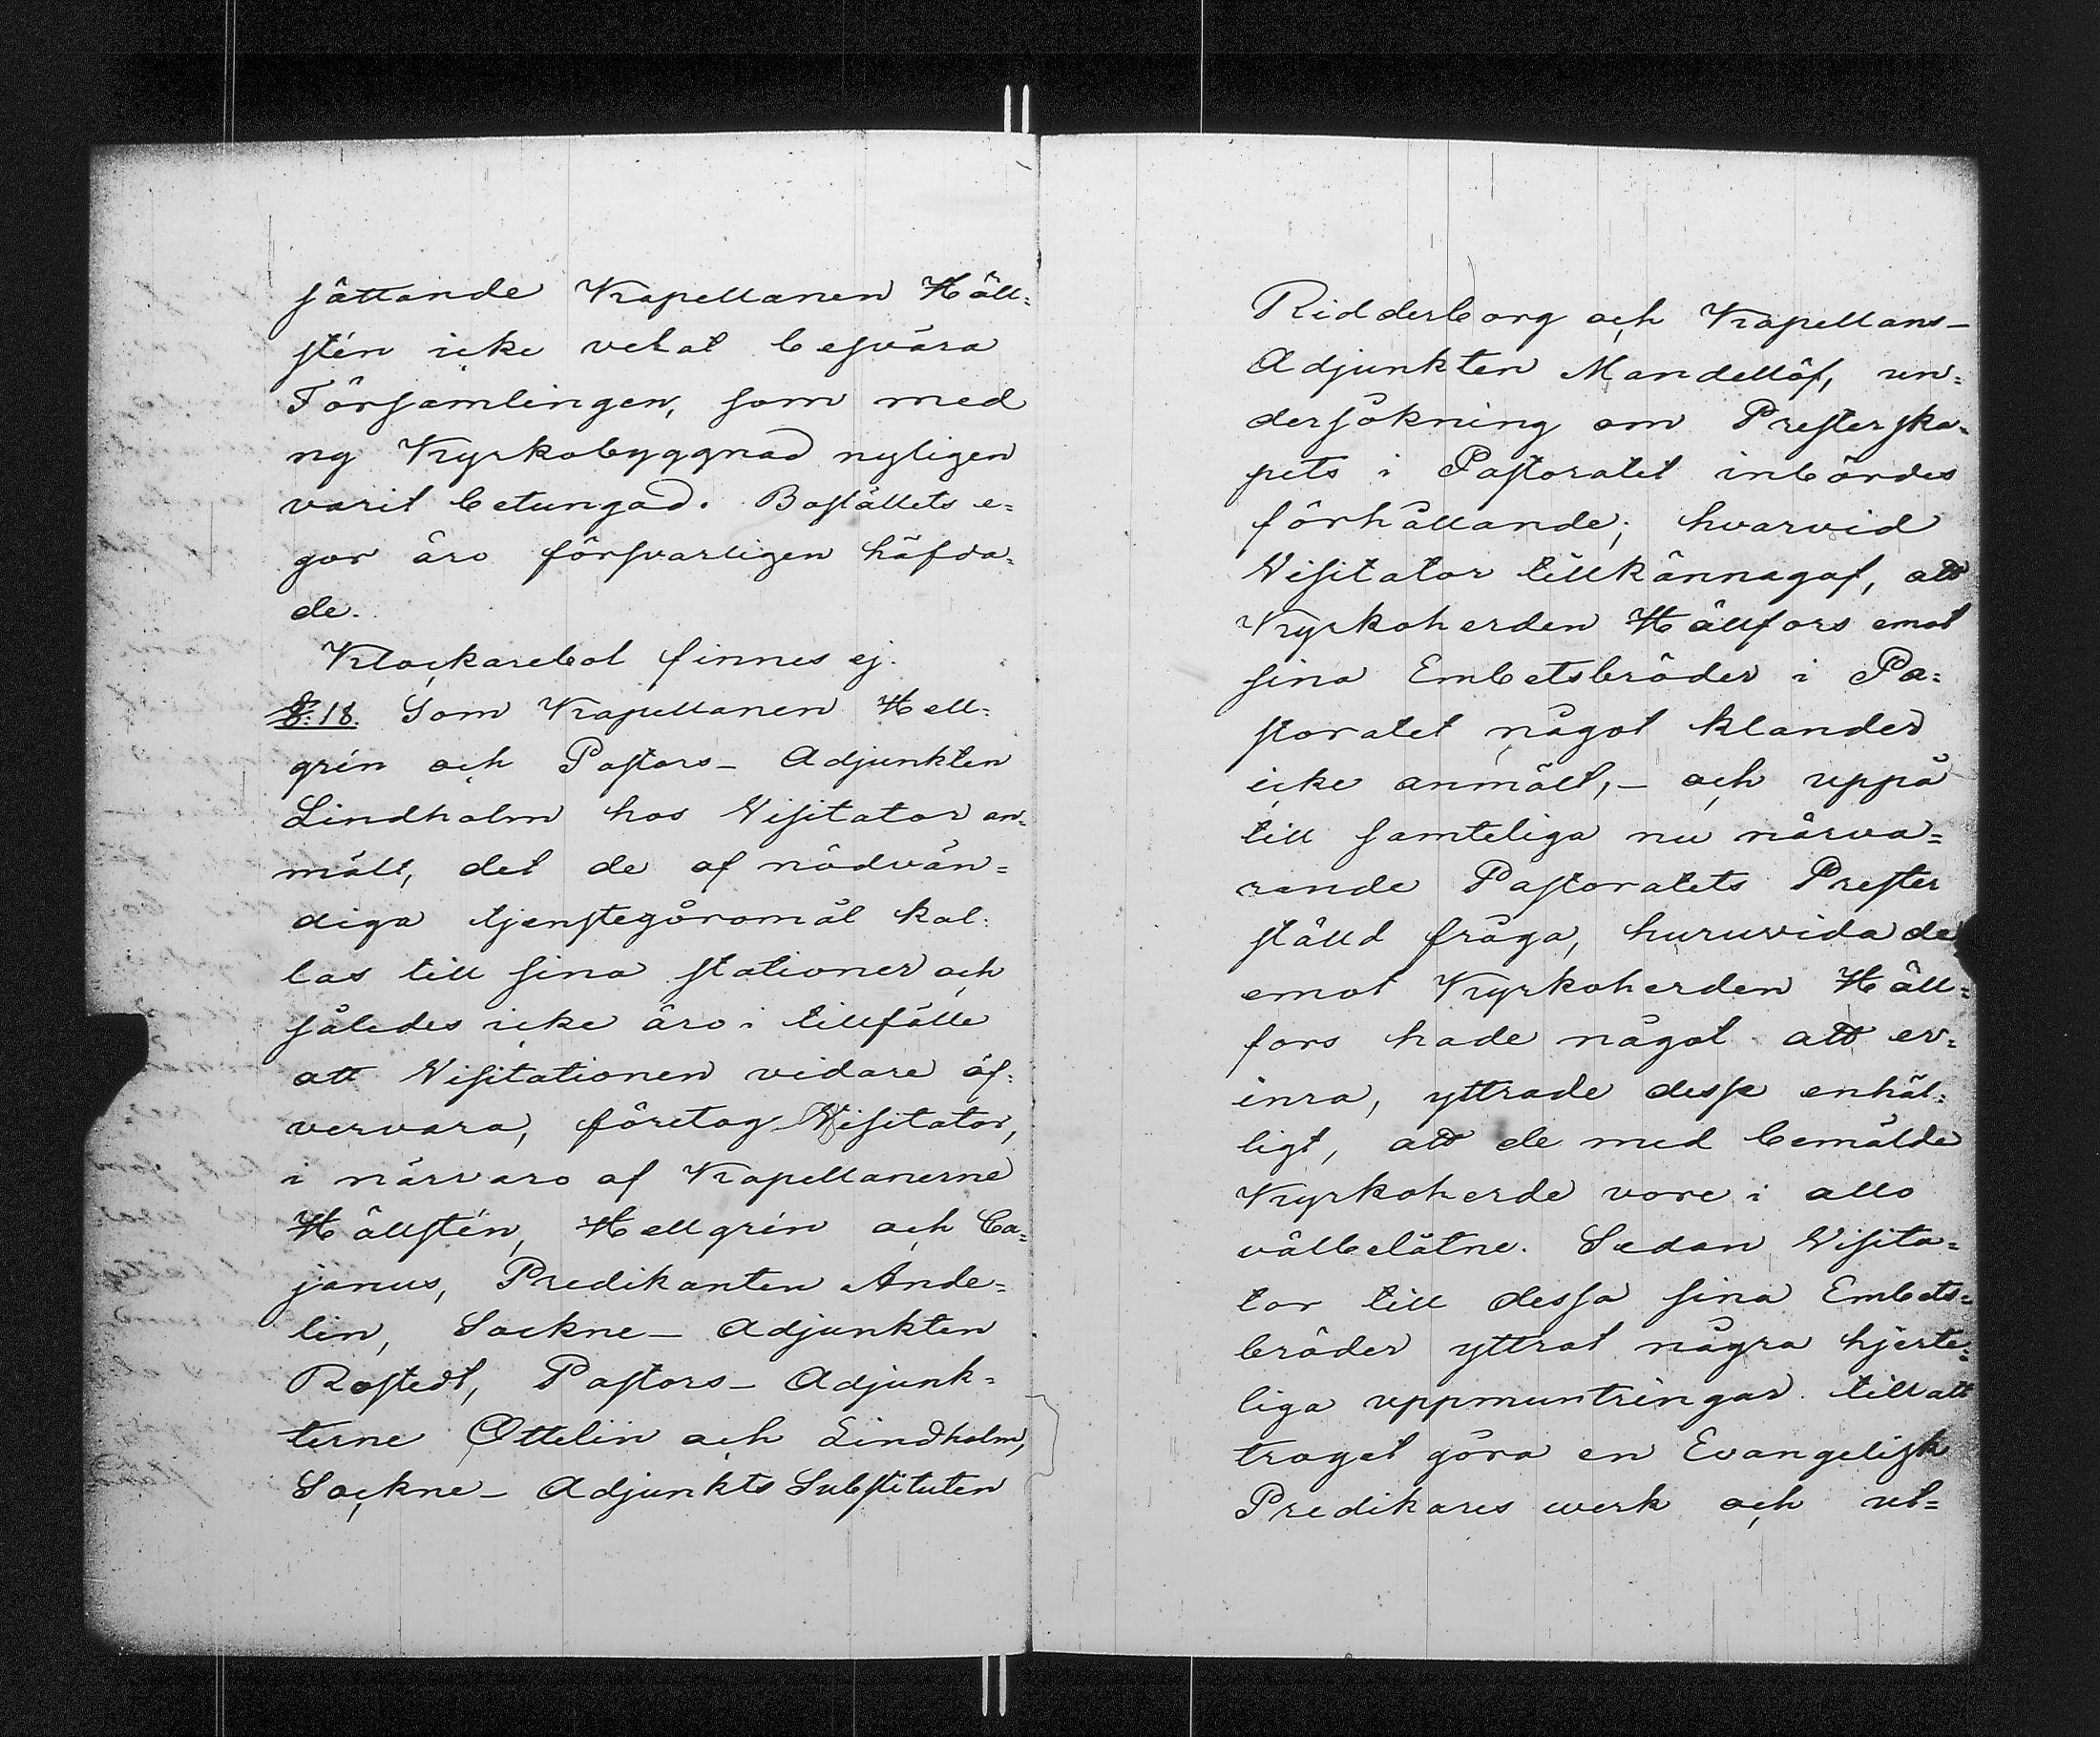 sättande Kapellanen Häll=
stén icke velat besvära
Församlingen, som med
ny Kyrkobyggnad nyligen
varit betungad. Boställets e=
gor äro försvarligen häfda=
de.
Klockarebol finnes ej.
§. 18. Som Kapellanen Hell=
grén och Pastors- Adjunkten
Lindholm hos Visitator an=
mält, det de af nödvän=
diga tjenstegöromål kal=
las till sina stationer och
således icke äro i tillfälle
att Visitationen vidare öf=
vervara, företog Visitator,
i närvaro af Kapellanerne
Hällstén, Hellgrén och Ca=
janus, Predikanten Ande=
lin, Sockne- Adjunkten
Rostedt, Pastors- Adjunk=
terne Ottelin och Lindholm,
Sockne- Adjunkts Substituten
Ridderborg och Kapellans-
Adjunkten Mandellöf, un=
dersökning om Presterska=
pets i Pastoratet inbördes
förhållande; hvarvid
Visitator tillkännagaf, att
Kyrkoherden Hällfors emot
sina Embetsbröder i Pa=
storatet något klander
icke anmält, - och uppå
till samteliga nu närva=
rande Pastoratets Prester
ställd fråga, huruvida de
emot Kyrkoherden Häll=
fors hade något att er=
inra, yttrade desse enhäl=
ligt, att de med bemälde
Kyrkoherde vore i allo
välbelåtne. Sedan Visita=
tor till dessa sina Embets=
bröder yttrat några hjerte=
liga uppmuntringar till att
troget göra en Evangelisk
Predikares werk och ut=